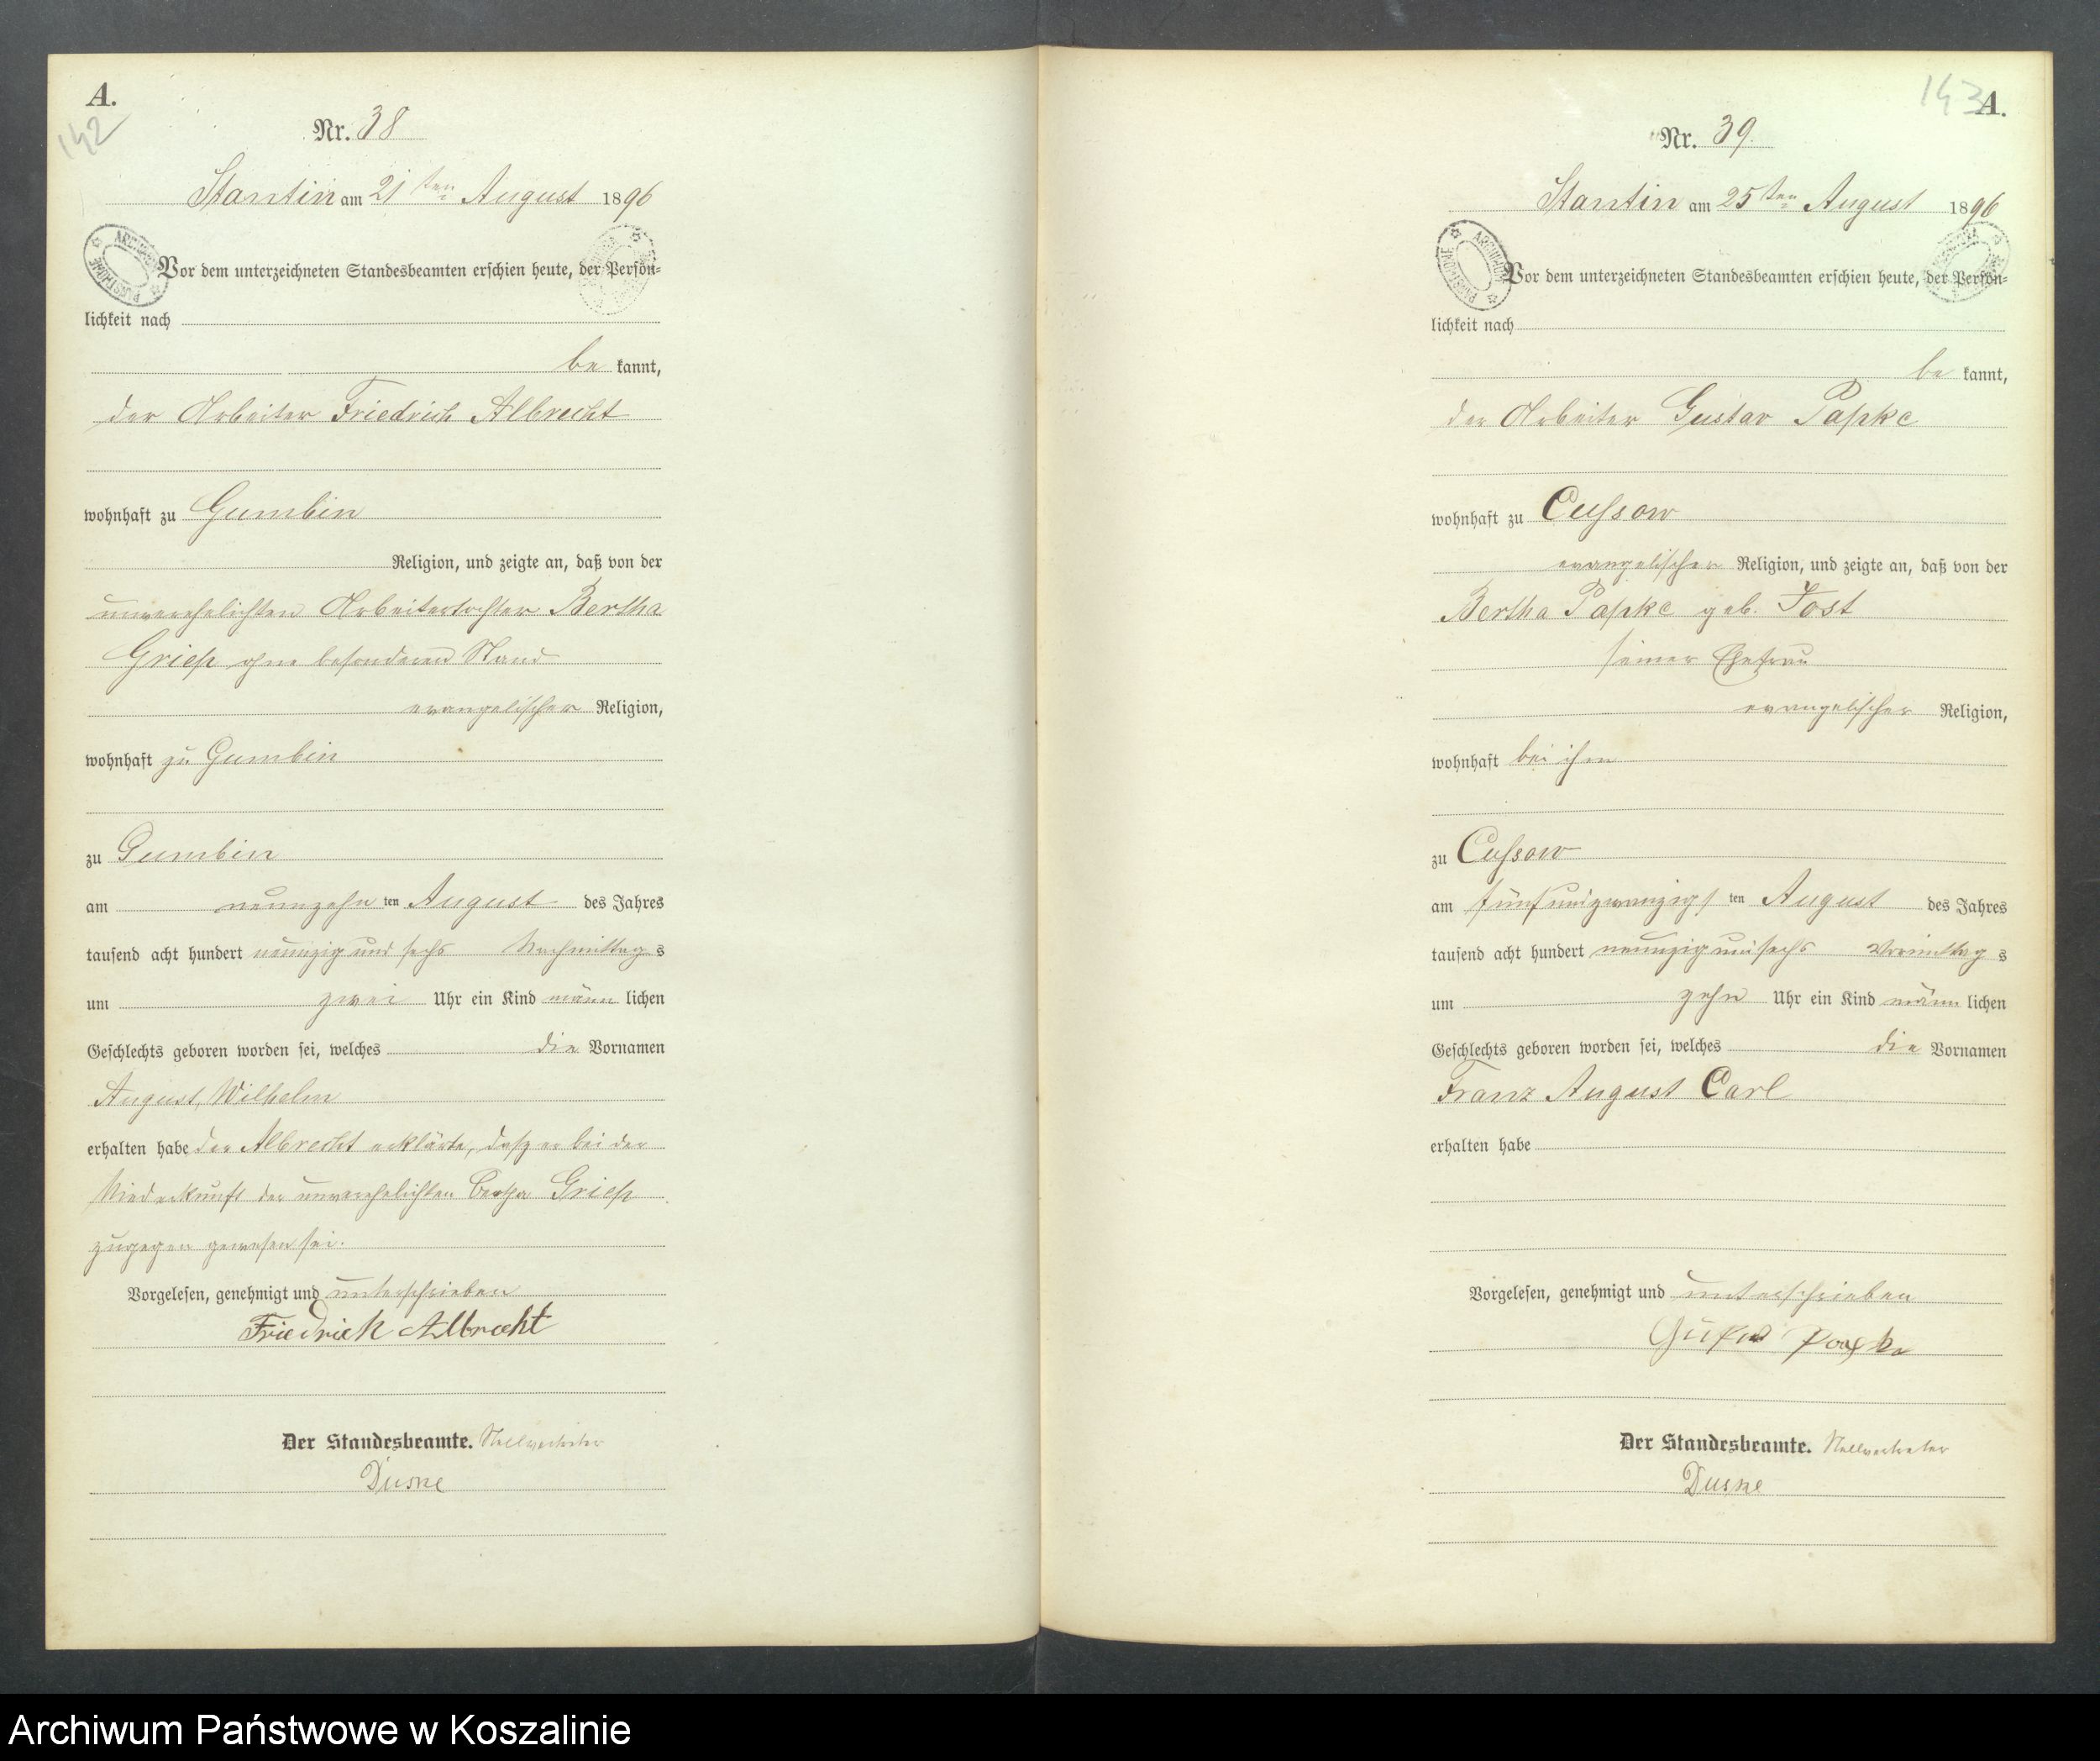 A.
142
Nr. 38
Stantin am 21ten August 1896
Vor dem unterzeichneten Standesbeamten erschien heute, der Persön-
lichkeit nach
be kannt,
der Arbeiter Friedrich Albrecht
wohnhaft zu Gumbin
Religion, und zeigte an, daß von der
unverehelichten Arbeitertochter Bertha
Grieß ohne besonderen Stand
evangelischer Religion,
wohnhaft zu Gumbin
zu Gumbin
am neunzehn ten August des Jahres
tausend acht hundert neunzig und sechs Nachmittag s
um zwei Uhr ein Kind männ lichen
Geschlechts geboren worden sei, welches die Vornamen
August, Wilhelm
erhalten habe der Albrecht erklärte, daß er bei der
Niederkunft der unverehelichten Bertha Grieß
zugegen gewesen sei.
Vorgelesen, genehmigt und unterschrieben
Friedrich Albrecht
Der Standesbeamte. Stellvertreter
Duske
143
A.
Nr. 39.
Stantin am 25ten August 1896
Vor dem unterzeichneten Standesbeamten erschien heute, der Persön-
lichkeit nach
be kannt,
der Arbeiter Gustav Papke
wohnhaft zu Cussow
evangelischer Religion, und zeigte an, daß von der
Bertha Papke geb. Jost
seiner Ehefrau
evangelischer Religion,
wohnhaft bei ihm
zu Cussow
am fünfundzwanzigs ten August des Jahres
tausend acht hundert neunzig und sechs Vormittag s
um zehn Uhr ein Kind männ lichen
Geschlechts geboren worden sei, welches die Vornamen
Franz August Carl
erhalten habe
Vorgelesen, genehmigt und unterschrieben
Gustav Papke
Der Standesbeamte. Stellvertreter
Duske
Archiwum Państwowe w Koszalinie